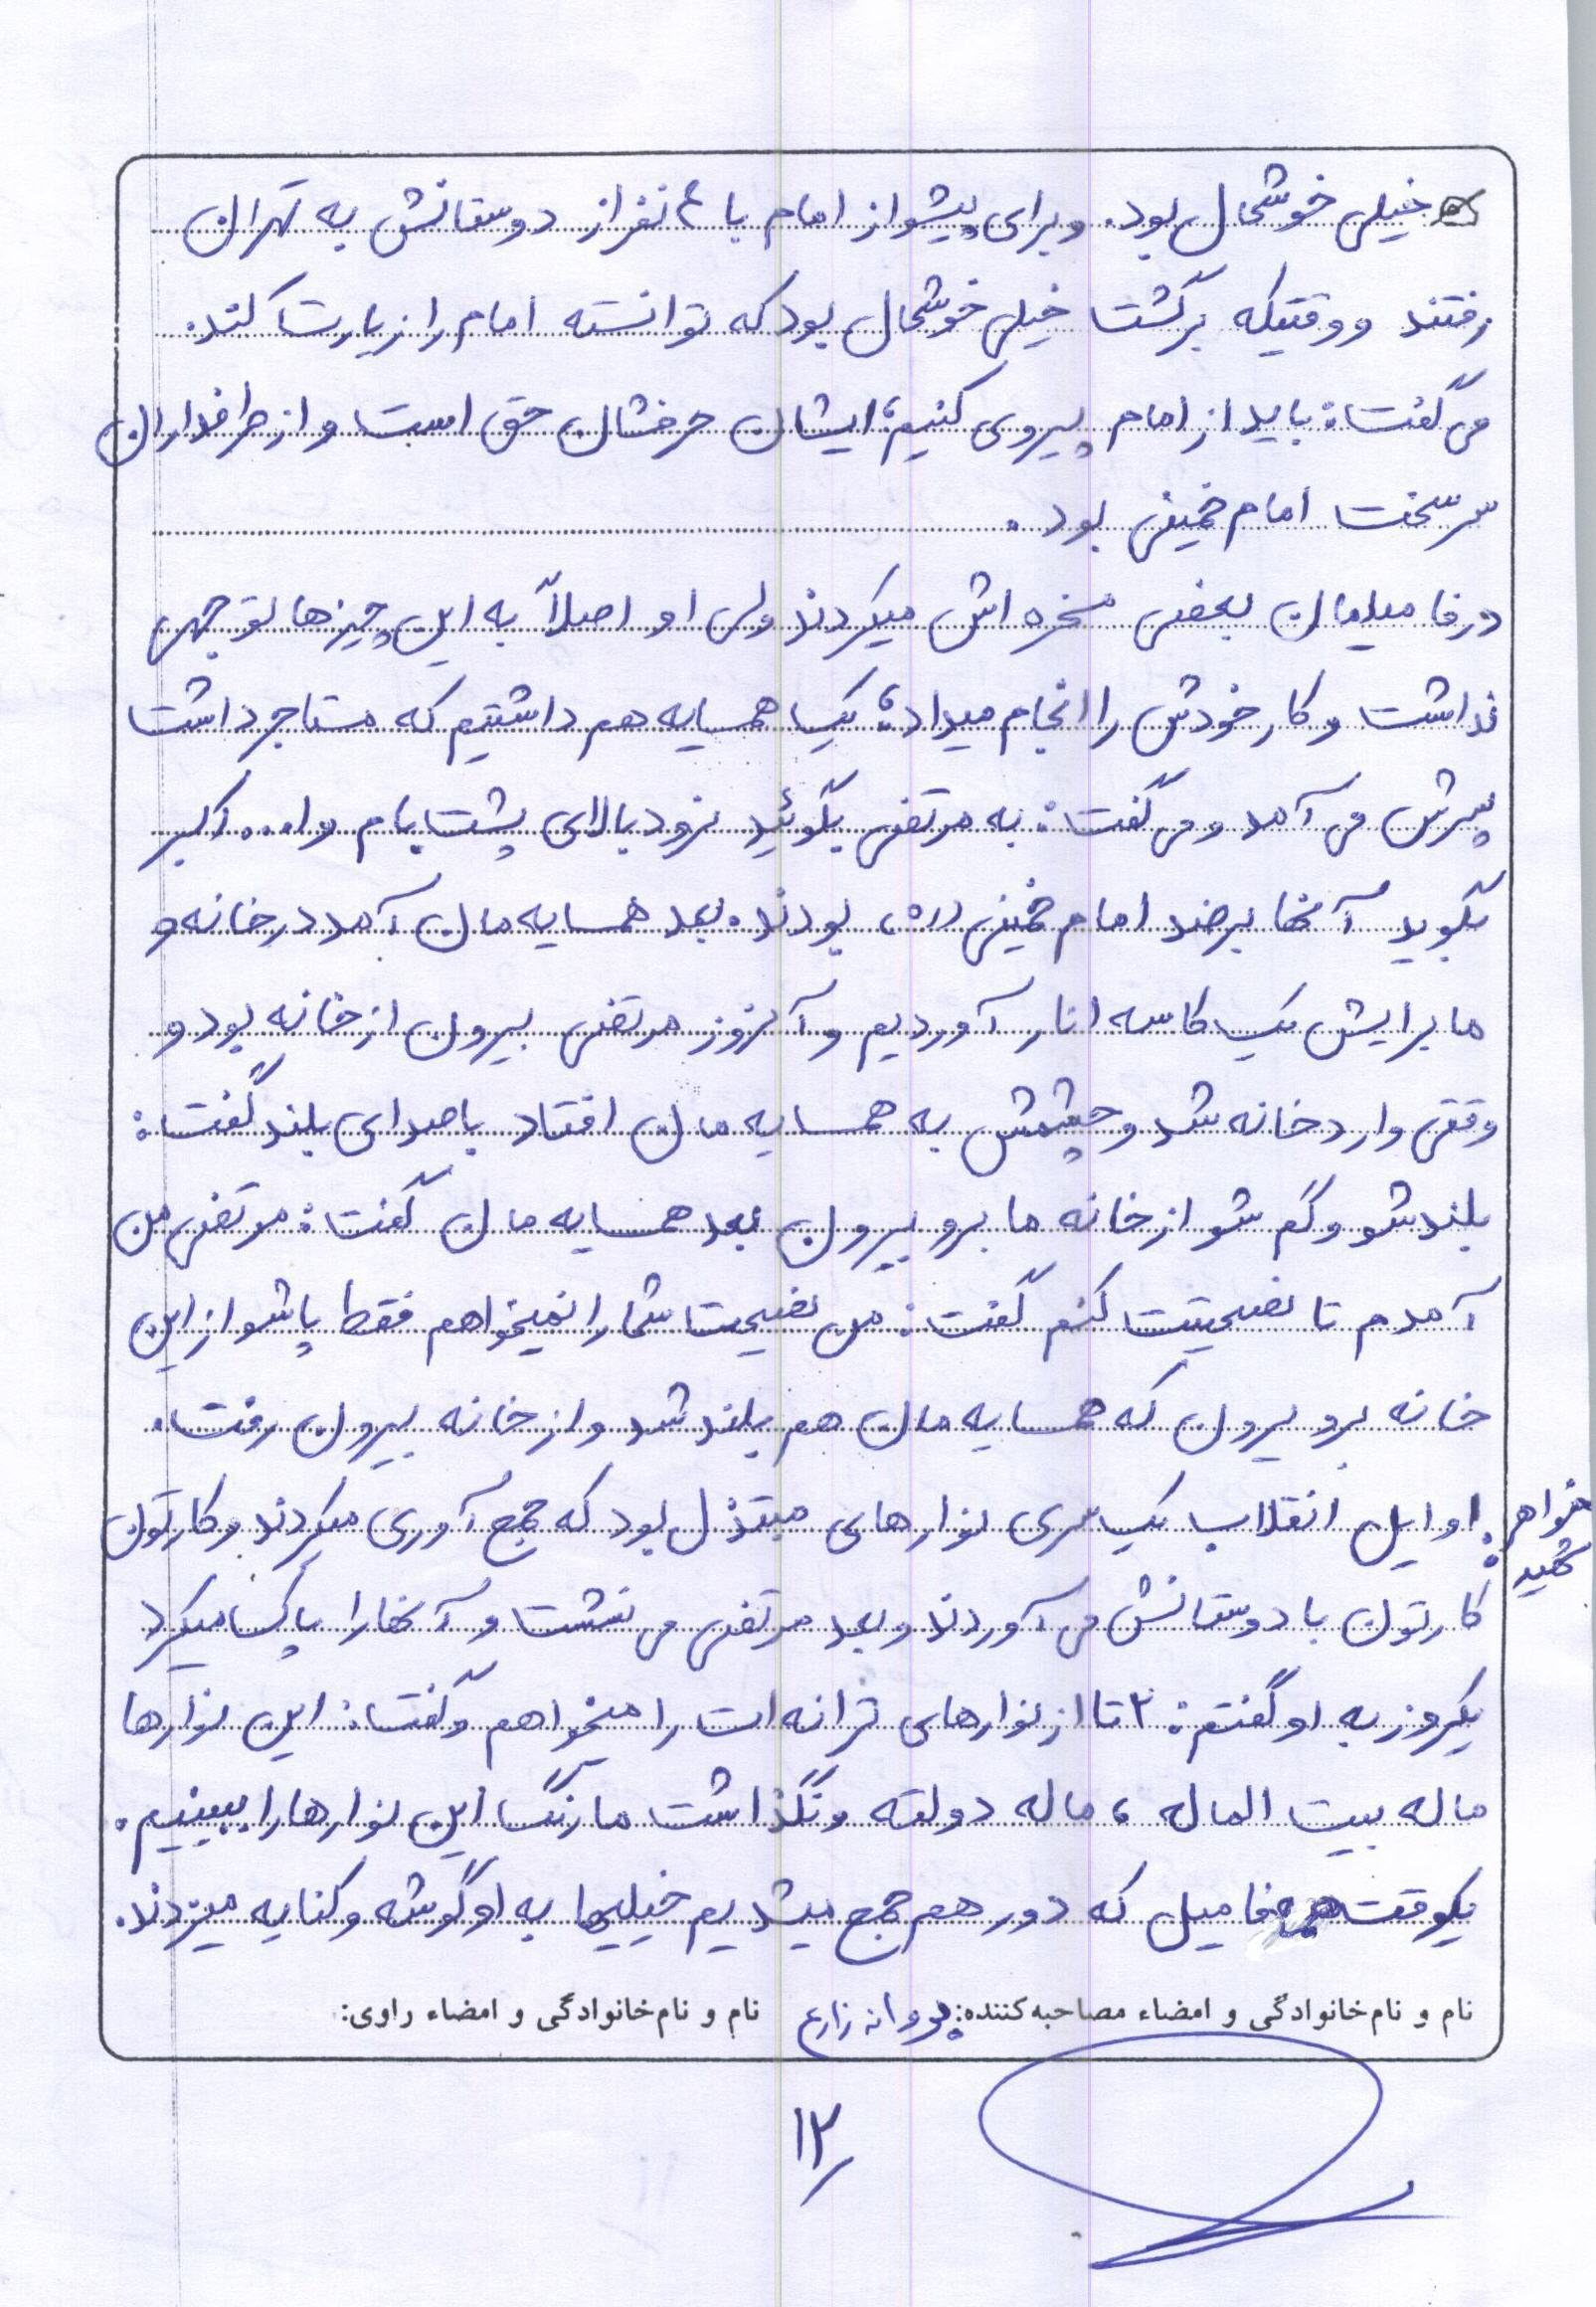 خیلی خوشحال بود. و برای پیشواز امام با ۴ نفر از دوستانش به تهران
رفتند و وقتیکه برگشت خیلی خوشحال بود که توانسته امام را زیارت کند.
می گفت: باید از امام پیروی کنیم؛ ایشان حرفشان حق است و از طرافداران
سرسخت امام خمینی بود.
در فامیلمان بعضی مسخره اش میکردند ولی او اصلاً به این چیزها توجهی
نداشت و کار خودش را انجام میداد؛ یک همسایه هم داشتیم که مستاجر داشت
پسرش می آمد و می گفت: به مرتضی بگوئید نرود بالای پشت بام و ا... اکبر
بگوید آنها برضد امام خمینی (ره) بودند. بعد همسایه مان آمد در خانه و
ما برایش یک کاسه انار آوردیم و آنروز مرتضی بیرون از خانه بود و
وقتی وارد خانه شد و چشمش به همسایه مان افتاد با صدای بلند گفت:
بلند شو و گم شو از خانه ما برو بیرون بعد همسایه مان گفت: مرتضی من
آمدم تا نصیحتت کنم گفت: من نصیحت شما را نمیخواهم فقط پاشو از این
خانه برو بیرون که همسایه مان هم بلند شد و از خانه بیرون رفت.
خواهر شهید: اوایل انقلاب یک سری نوارهای مبتذل بود که جمع آوری میکردند و کارتون
کارتون با دوستانش می آوردند و بعد مرتضی می نشست و آنها را پاک میکرد
یکروز به او گفتم: ۲ تا از نوارهای ترانه ات را میخواهم و گفت: این نوارها
ماله بیت الماله، ماله دولته و نگذاشت ما رنگ این نوارها را ببینیم.
یکوقت فامیل که دور هم جمع میشدیم خیلیها به او گوشه و کنایه میزدند.
نام و نام خانوادگی و امضاء مصاحبه کننده: پروانه زارع نام و نام خانوادگی و امضاء راوی:
۱۲